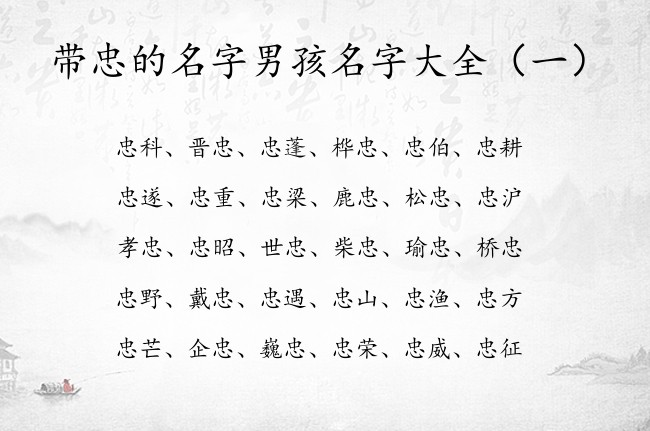 带忠的名字男孩名字大全（一）
忠科、晋忠、忠蓬、桦忠、忠伯、忠耕
忠遂、忠重、忠梁、鹿忠、松忠、忠沪
孝忠、忠昭、世忠、柴忠、瑜忠、桥忠
忠野、戴忠、忠遇、忠山、忠渔、忠方
忠芒、企忠、巍忠、忠荣、忠威、忠征